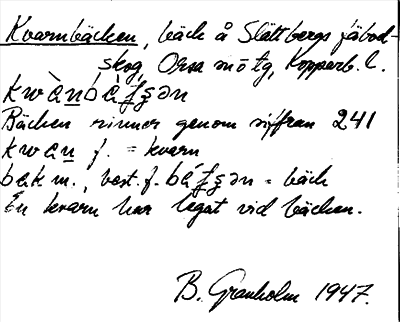 Kvarnbäcken, bäck å Slättbergs fäbod-
skog, Orsa sn ö tg, Kopparb. l.
Bäcken rinner genom siffran 241
f. = kvarn
m., best. f. = bäck
En kvarn har legat vid bäcken.
B. Granholm 1947.